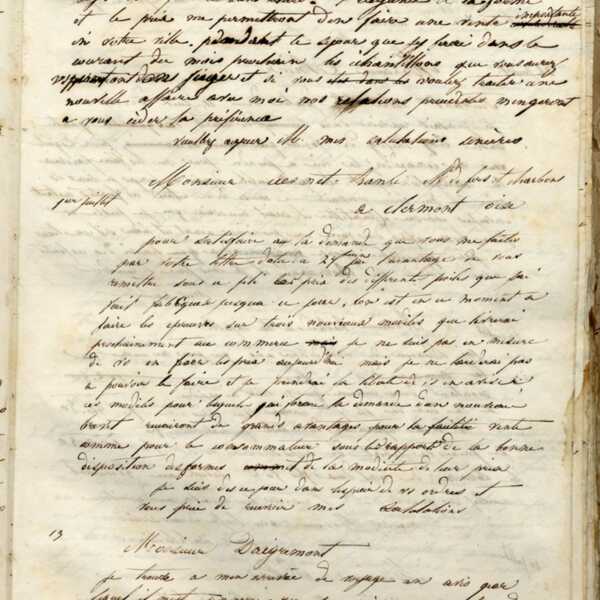 et le prix me permettront d'en faire une vente importante
in votre ville. pendant le sejour que je ferai dans le
courant du mois prochain les echantillons que vous aurez
juger et si vous voulez traiter une
nouvelle affaire avec moi nos relations precedentes m'engageront
a vous ceder la preference
Veuillez agreer M. mes salutations sinceres.
Monsieur Md de fers et charbons
1er juillet
a clermont oise
pour satisfaire a la demande que vous me faites
par votre lettre datée du 27 j'ai l'avantage de vous
remettre sous ce pli les prix des differents poiles que j'ai
fait fabriquer jusqua ce jour, l'on est en ce moment a
faire les epreuves sur trois nouveaux modeles que je livrerai
prochainement au commerce je ne suis pas en mesure
de vs en fixer les prix aujourd'hui mais je ne tarderai pas
a pouvoir le faire et je prendrai la liberté de vs en aviser
ces modeles pour lesquels j'ai la demande d'un nouveau
brevet reuniront de grands avantages pour la facilité vente
comme pour le consommateur sous le rapport de la bonne
disposition des formes et de la modicité de leur prix
je suis dans l'espoir de vs ordres et
vous prie de recevoir mes salutations
13
Monsieur Daigremont
je trouve a mon arrivée de voyage un avis par
lequel il m'est